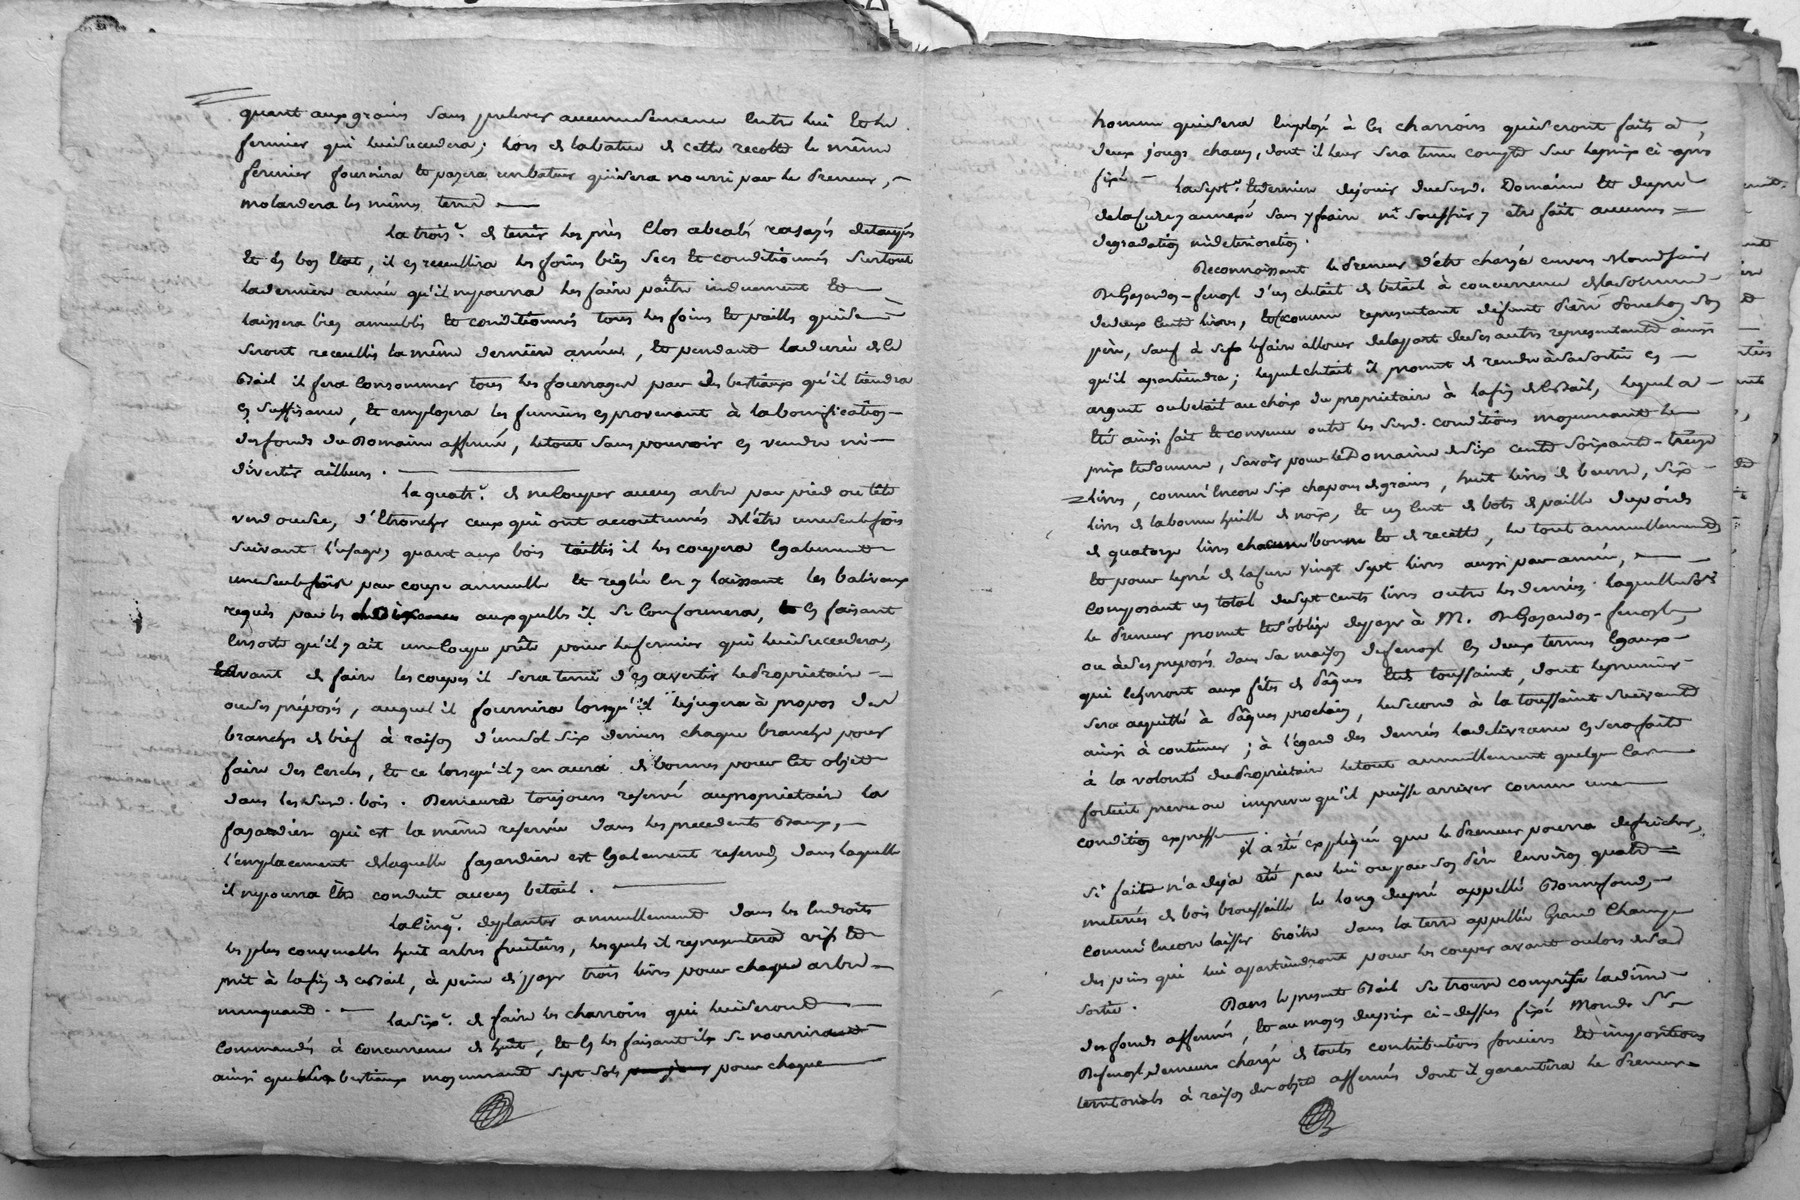 quant aux grains sans prelever aucune semence entre lui et le
fermier qui lui succedera; lors de la batue de cette recolte le même
fermier fournira et payera un bateur qui sera nourri par le Preneur,
les mêmes
la trois.e de tenir les près clos abealés rasagés
et en bon etat, il en recueillira les foins bien secs et conditionnés surtout
la derniere année qu'il ne pourra les faire paître induement et
laissera bien ameublis et conditionnés tous les foins et pailles qui se
seront recueillis la même derniere année, et pendant la durée de ce
Bail il fera consommer tous les fourrages par des bestiaux qu'il tiendra
en suffisance, et employera les fumiers en provenant à la bonification
des fonds du Domaine affermé, le tout sans pouvoir en vendre ni
divertir ailleurs.
la quatr.e de ne couper aucun arbre par pied ou tête
verd ou sec, d'etroncher ceux qui ont accoutumés d'etre une seule fois
suivant l'usage, quant aux bois taillis il les coupera egalement
une seule fois par coupe annuelle et reglée en y laissant les baliveaux
requis par les auxquelles il se conformera, en faisant
ensorte qu'il y ait une coupe prête pour le fermier qui lui succedera,
avant de faire les coupes il sera tenu d'en avertir le Proprietaire
ou ses préposés, auquel il fournira lorsqu'il le jugera à propos des
branches de bief à raison d'un sol six deniers chaque branche pour
faire des cercles, et ce lorsqu'il y en aura de bonnes pour cet objet
dans les susd. bois. Demeure toujours reservé au proprietaire la
fazardiere qui est la même reservée dans les precedents Baux,
l'emplacement de laquelle fazardiere est egalement reservé, dans laquelle
il ne pourra être conduit aucun betail.
la cinq.e de planter annuellement dans les endroits
les plus convenables huit arbres fruitiers, lesquels il representera vifs et
prit à la fin de ce Bail, à peine de payer trois livres pour chaque arbre
manquant.
la six.e de faire les charrois qui lui seront
commandés à concurrence de huit, et en les faisant ils se nourriront
ainsi que les bestiaux moyennant sept sols pour chaque
homme qui sera employé à ces charrois qui seront faits à
deux jougs chacun, dont il leur sera tenu compte sur le prix ci-après
fixé
la sept.e et derniere de jouir du susd. Domaine et du pré
de la Cure y annexé sans y faire ni souffrir y etre fait aucune
degradation ni deterioration.
Reconnoissant le Preneur d'être chargé envers
d'un cheptail de betail à concurrence de la somme
de deux cents livres, et comme representant defunt Pierre
pere, sauf à se le faire allouer de la part de ses autres representants ainsi
qu'il apartiendra; lequel cheptail il promet de rendre à sa sortie en
argent ou betail au choix du proprietaire à la fin de ce Bail, lequel a
été ainsi fait et convenu outre les susd. conditions moyennant le
prix et somme, savoir pour le Domaine de six cents soixante-treize
livres, comm'encore six chapons de grains, huit livres de beurre, six
livres de la bonne huille de noix, et un cent de bots de paille du poids
de quatorze livres chacun bonne et de recette, le tout annuellement
et pour le pré de la Cure vingt sept livres aussi par année,
composant un total de sept cents livres outre les denrées; laquelle
le Preneur promet et s'oblige de payer à M.
ou à ses preposés dans sa maison en deux termes egaux
qui echeront aux fêtes de Pâques et de toussaint, dont le premier
sera acquitté à Pâques prochain, le second à la toussaint suivant
ainsi à continuer; à l'égard des denrées la delivrance en sera faite
à la volonté du Proprietaire le tout annuellement quelque cas
fortuit prevu ou imprevu qu'il puisse arriver comme une
condition expresse. il a été expliqué que le Preneur pourra defricher,
si fait n'a deja eté par lui ou par son Père environ quatre
meterées de bois broussaille le long du pré appellé Bonnefond,
comm'encore laisser croitre dans la terre appellée Grand Champ
des pins qui lui appartiendront pour les couper avant ou lors de sad
sortie. Dans le present Bail se trouve comprise la dime
des fonds affermés, et au moyen du prix ci-dessus fixé
demeure chargé de toutes contributions foncieres et impositions
territoriales à raison des objets affermés dont il garantira le Preneur